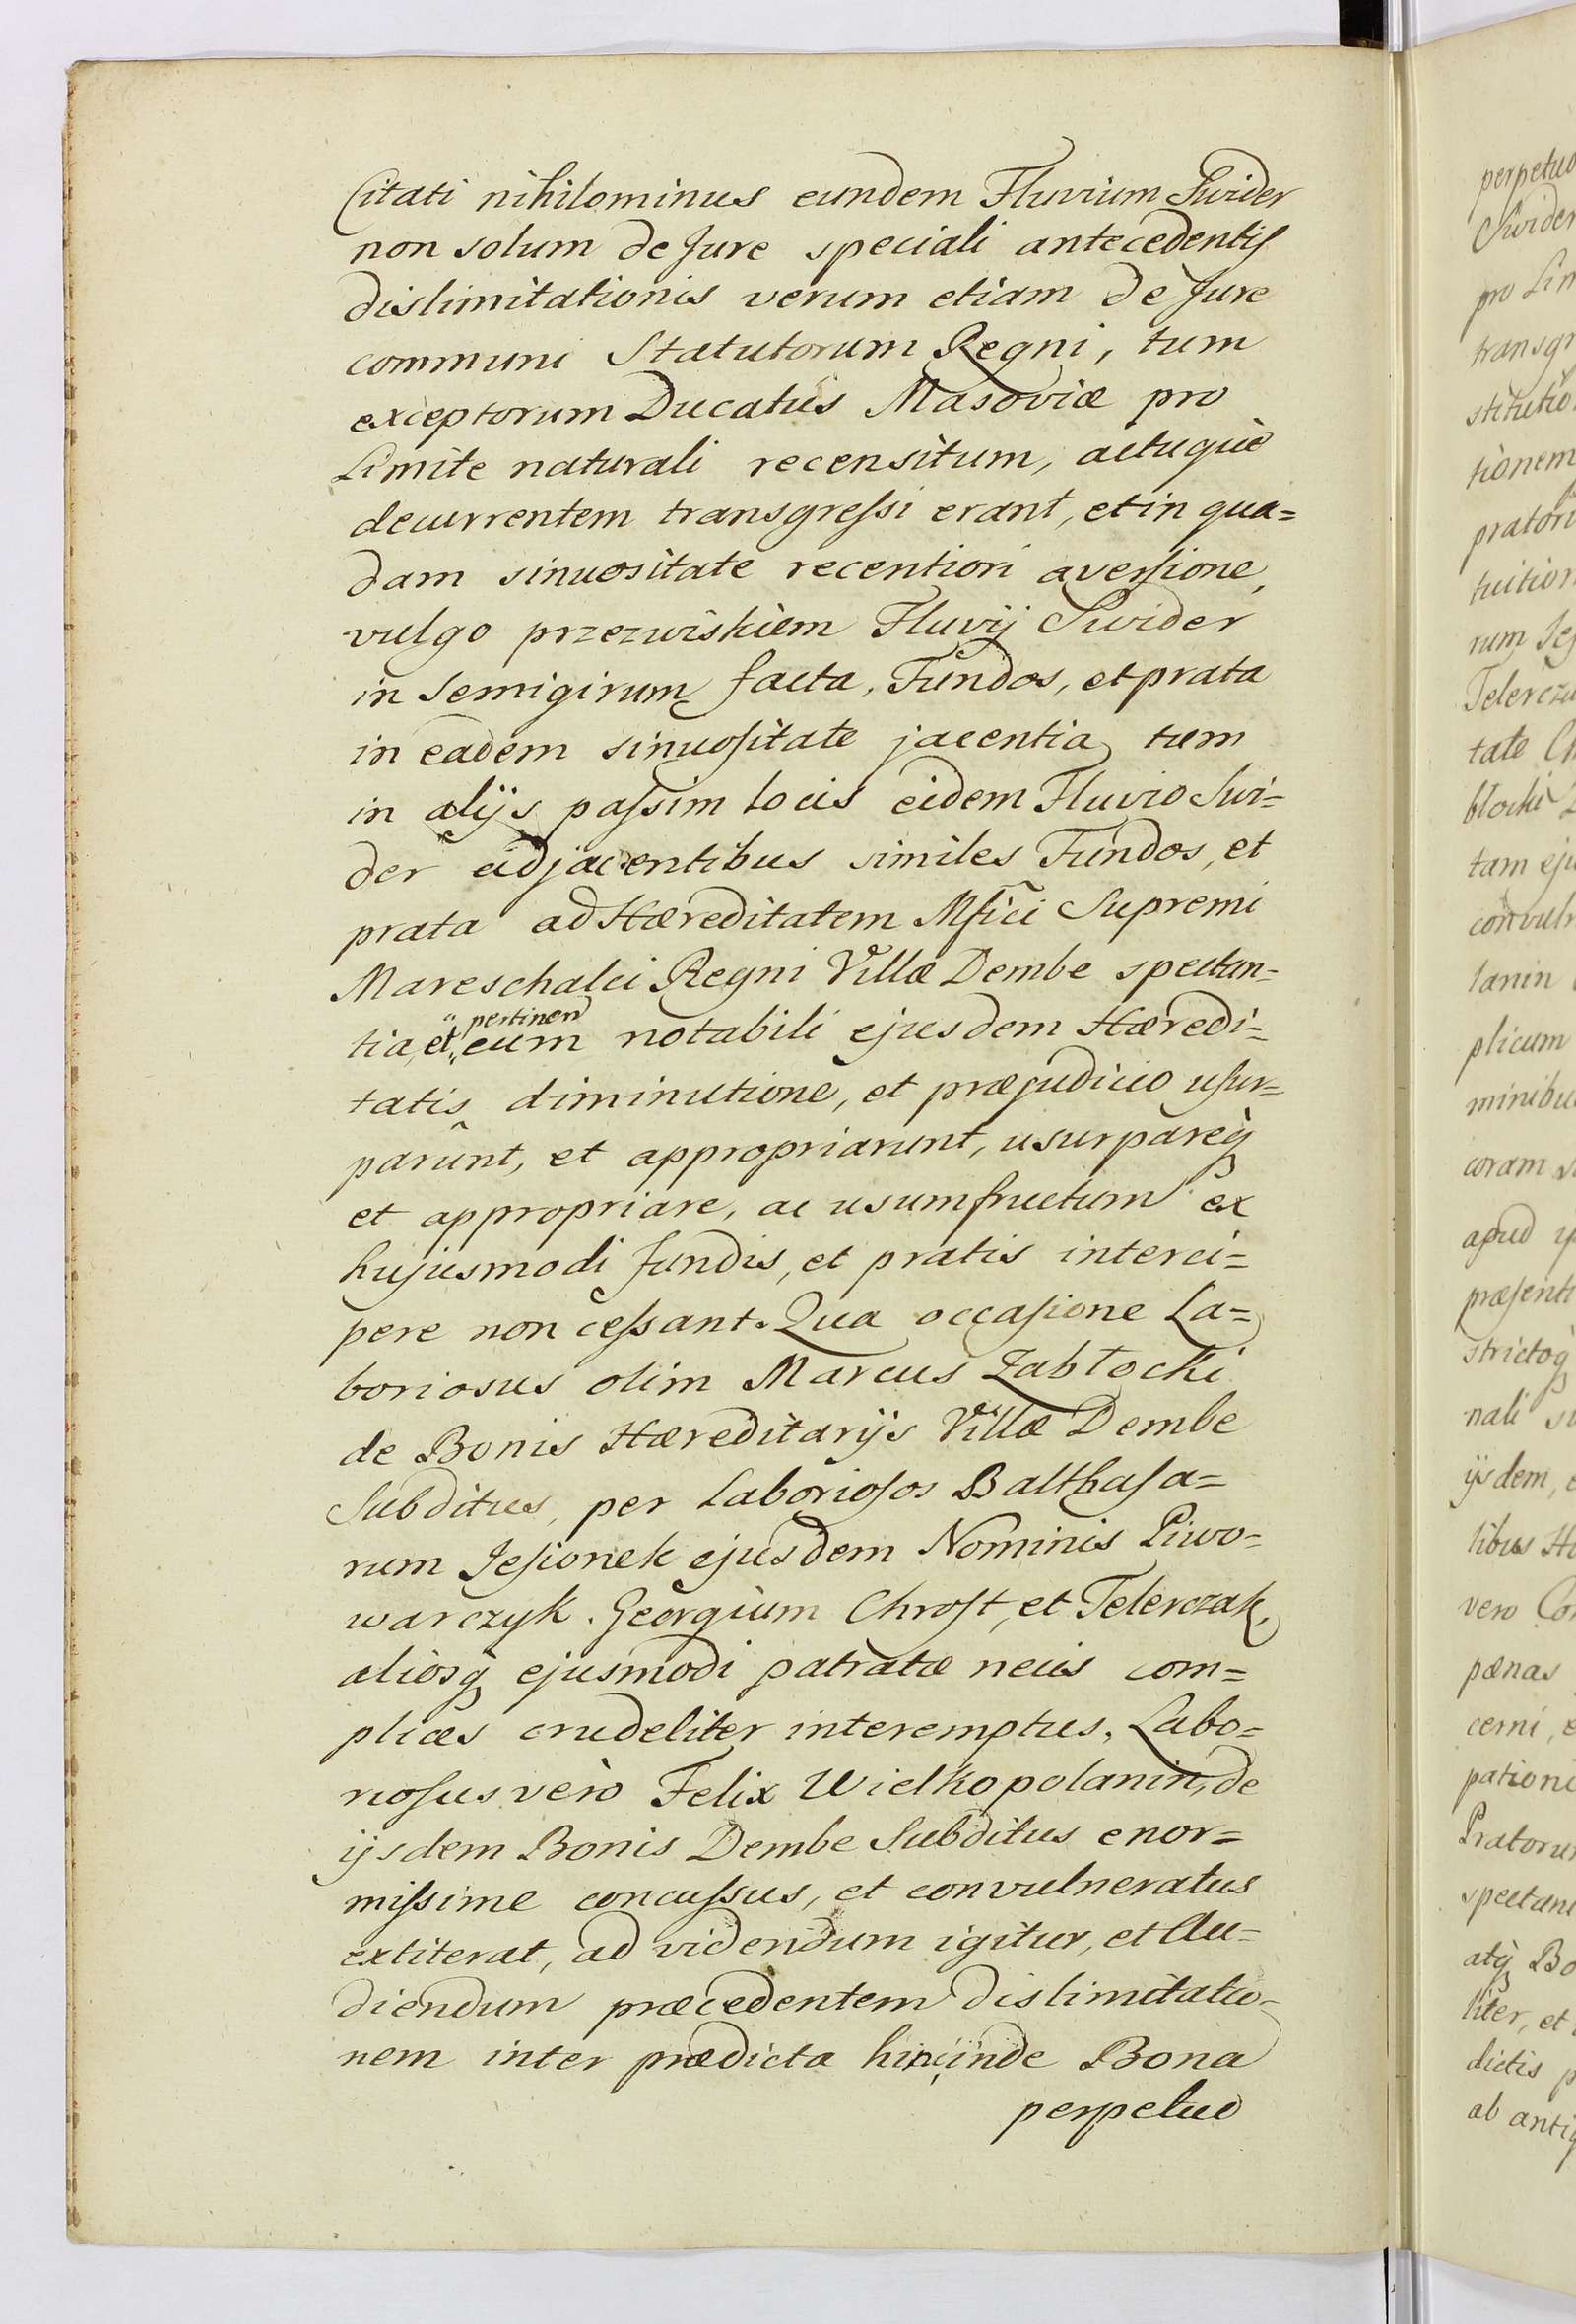 Citati nihilominus eundem Fluvium Swider
non solum de Jure speciali antecedentis
dislimitationis verum etiam de Jure
communi Statutorum Regni, tum
exceptorum Ducatûs Masoviæ pro
Limite naturali recensitum, actuquè
decurrentem transgreſsi erant, et in qua=
dam sinuositate recentiori aversione,
vulgo przezwiskiem Fluvij Swider
in Semigirum facta, Fundos, et prata
in eadem sinuoſitate jacentia tum
in alijs paſsim locis eidem Fluvio Swi=
der adjacentibus similes Fundos, et
prata ad Hæreditatem Mſici Supremi
Mareschalci Regni Villæ Dembe spectan=
tia, et pertinen cum notabili ejusdem Hæredi=
tatis diminutione, et præjudicio uſur=
parûnt, et appropriarunt, usurpareq́
et appropriare, ac usumfructum ex
hujusmodi fundis, et pratis interci=
pere non ceſsant. Qua occaſione La=
boriosus olim Marcus Zabłocki
de Bonis Hæreditarijs Villæ Dembe
Subditus, per Laborioſos Balthaſa=
rum Jeſionek ejusdem Nominis Piwo=
warczyk. Georgium Chroſt, et Telerczak,
aliosq́ ejusmodi patratæ necis com=
plices crudeliter interemptus. Labo=
rioſus verò Felix Wielkopolanin, de
ijsdem Bonis Dembe Subditus enor=
miſsime concuſsus, et convulneratus
extiterat, ad videndum igitur, et Au=
diendum præcedentem dislimitatio=
nem inter prædicta hincinde Bona
perpetuo
perpetuo
Swider
pro Lim
transgr
stitutio
tionem
pratoru
tuition
rum Jeſ
Telerczu
tate
błocki
tam eju
convuln
lanin
plicum
minibu
coram
apud
præſenti
strictoq́
nali
ijsdem,
libus
vero
pœnas
cerni,
pationi
Pratorum
spectan
atq́ Bo
liter, et
dictis p
ab antiq